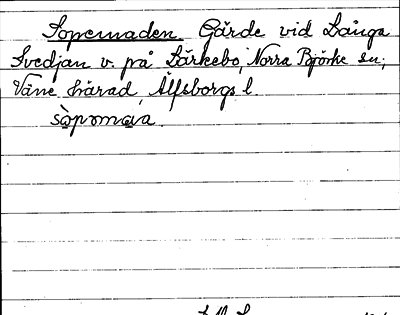 Sopemaden. Gärde vid Långa
Svedjan v. på Lärkebo, Norra Björke sn;
Väne härad, Älfsborgs l.
sòpomαa.